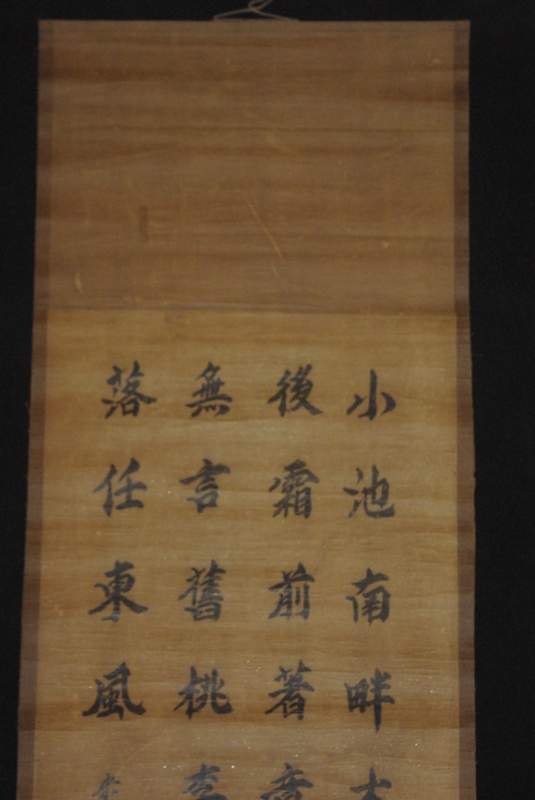 小池南畔
後霜前著
無言舊桃李
落任東風